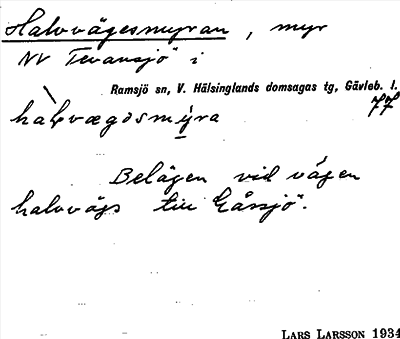 Halvvägesmyran, myr
NV Tevansjö i
Ramsjö sn, V. Hälsinglands domsagas tg, Gävleb. l.
77
hàlvægəsmýra
Belägen vid vägen
halvvägs till Gåssjö.
LARS LARSSON 1934